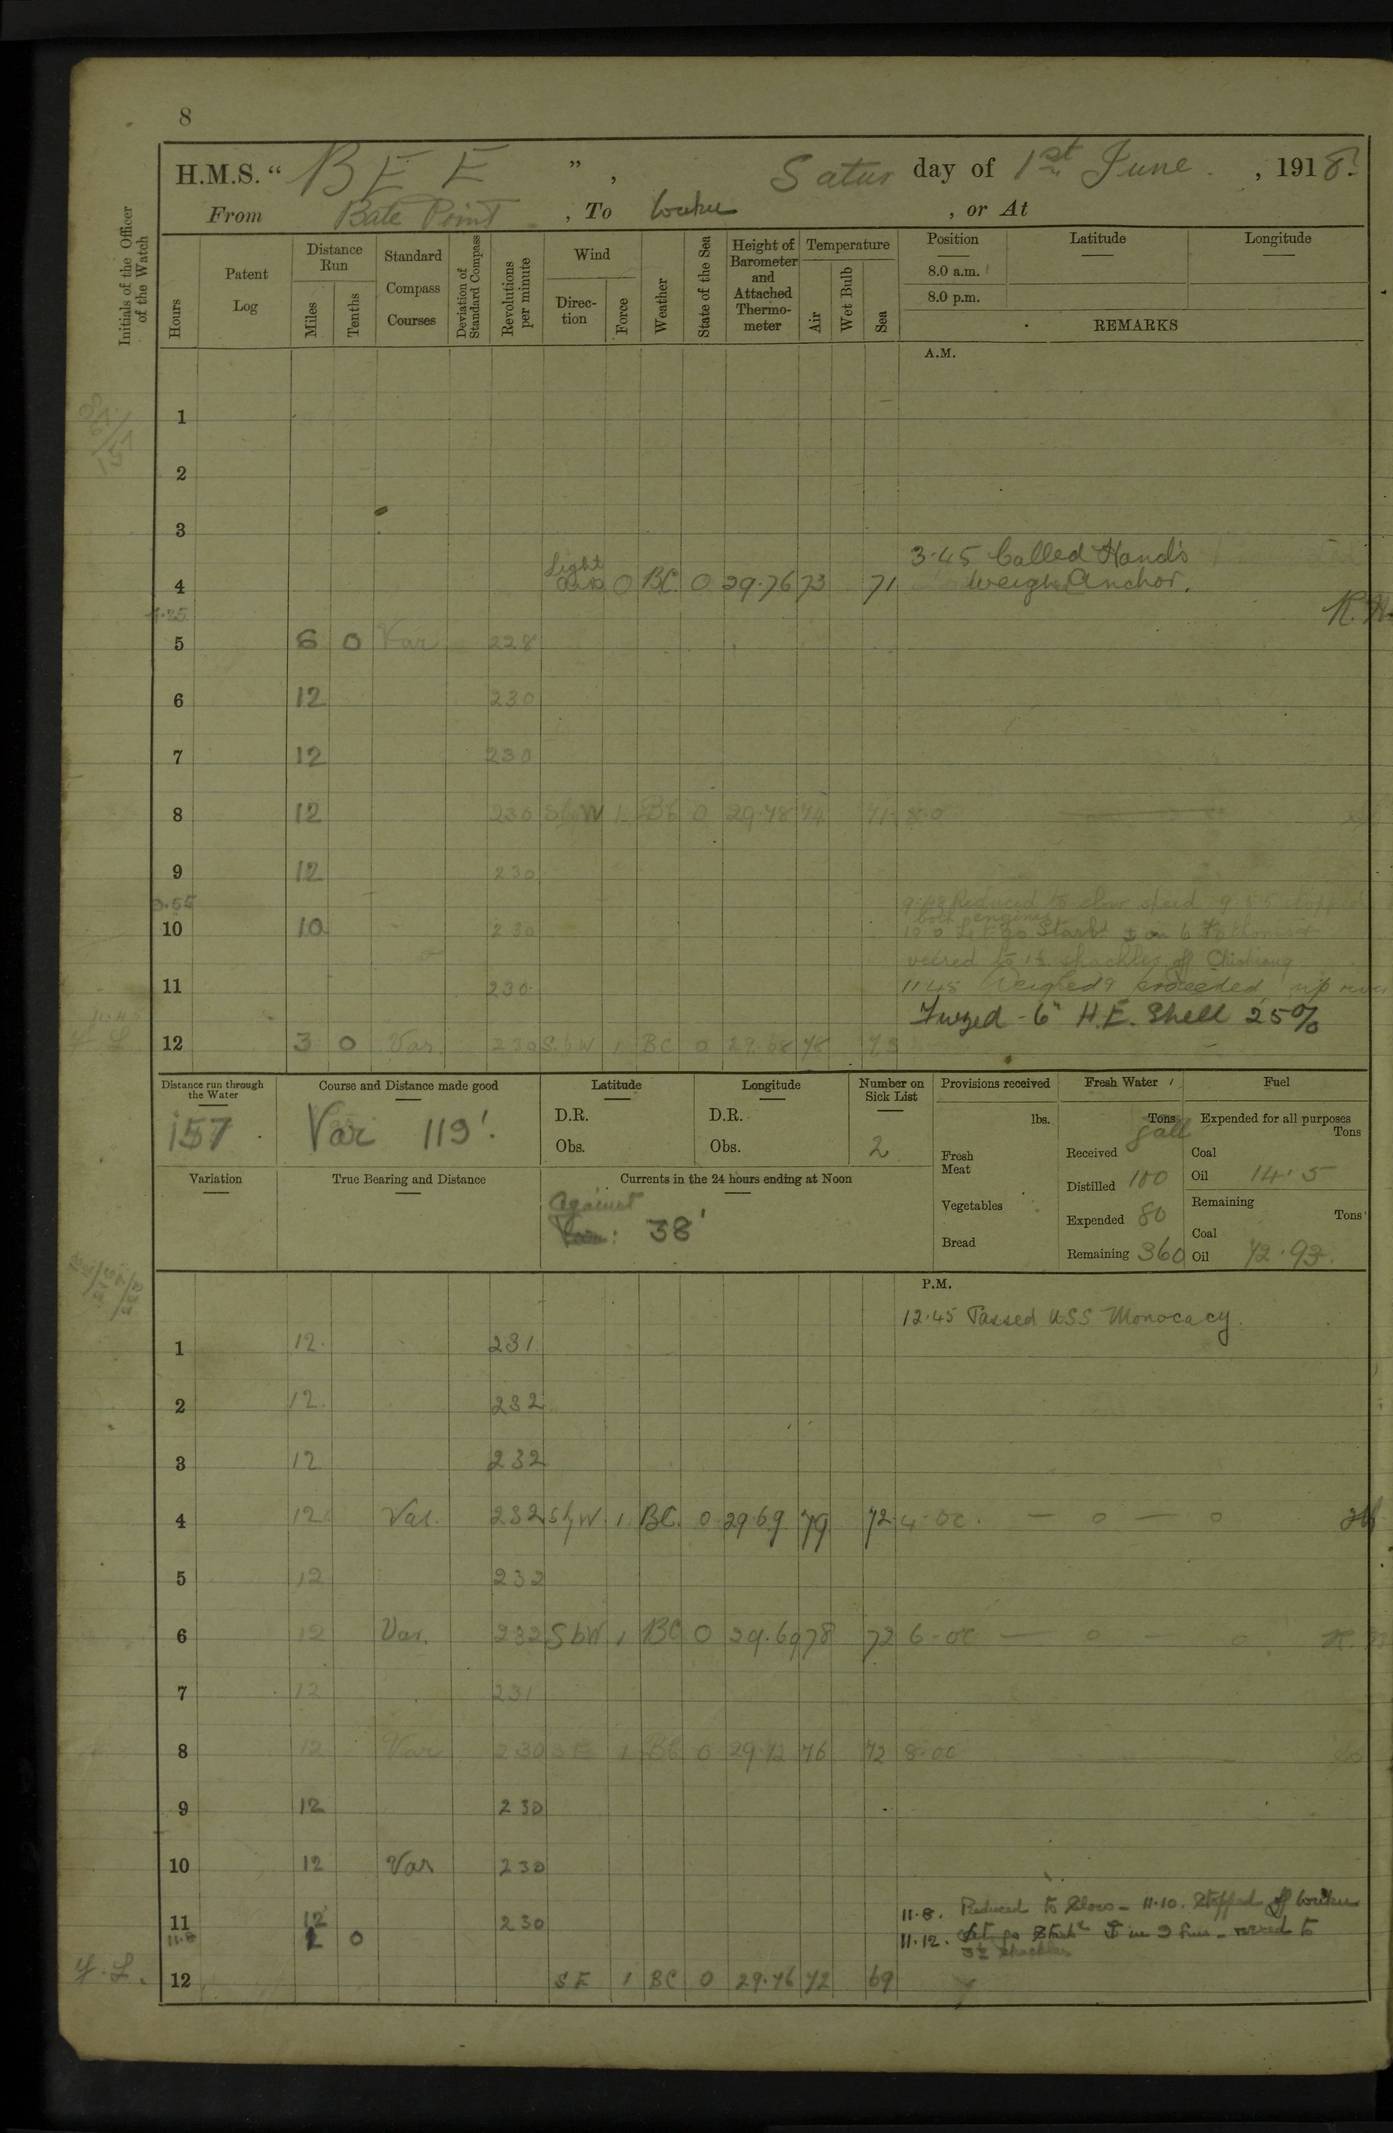 8
H.M.S. “ BEE ” , Satur day of 1st June. , 1918.
From Bate Point , To Wuhu , or At
Initials of the Officer of the Watch
Hours
Patent Log
Distance Run
Miles
Tenths
Standard Compass Courses
Deviation of Standard Compass
Revolutions per minute
Wind
Direction
Force
Weather
State of the Sea
Height of Barometer and Attached Thermometer
Temperature
Air
Wet Bulb
Sea
Position
Latitude
Longitude
8.0 a.m.
8.0 p.m.
REMARKS
A.M.
1
2
3
3.45 Called Hands
4 Light airs 0 BC 0 29.76 73 71 Weigh Anchor.
4.25
5 6 0 Var 228
6 12 230
7 12 230
8 12 230 SbyW 1 BC 0 29.78 74 71 8.0
9 12 230
9.55 9.48 Reduced to slow speed 9.55 stopped
both engines
10 10 230 10.0 Let go Starbd in 6 Fathoms &
veered to 1½ shackles off
11 230 11.45 Weighed & proceeded up river
11.45 Fuzed - 6" H.E. Shell 25%
12 3 0 Var 230 S.bW 1 BC 0 29.68 78 73
Distance run through the Water
157
Course and Distance made good
Var 119'.
Latitude
D.R.
Obs.
Longitude
D.R.
Obs.
Number on Sick List
2
Provisions received
lbs.
Fresh Meat
Vegetables
Bread
Fresh Water
Tons
gall
Received
Distilled 100
Expended 80
Remaining 360
Fuel
Expended for all purposes
Tons
Coal
Oil 14.5
Remaining
Tons
Coal
Oil 72.93.
Variation
True Bearing and Distance
Currents in the 24 hours ending at Noon
Against
38'
P.M.
12.45 Passed USS Monocacy.
1 12. 231
2 12. 232
3 12 232
4 12 Var. 232 SbyW 1 BC. 0 29.69 79 72 4-oc. — o — o
5 12 232
6 12 Var. 232 SbW 1 BC 0 29.69 78 72 6-oc — o — o
7 12 231
8 12 Var 230 SE 1 BC 0 29.72 76 72 8-oc
9 12 230
10 12 Var 230
11 12 230 11.8. Reduced to Slow - 11.10. Stopped off Wuhu
11.8 2 0 11.12. Let go Starbd in 9 fms - veered to
3½ Shackles
12 SE 1 BC 0 29.76 72 69